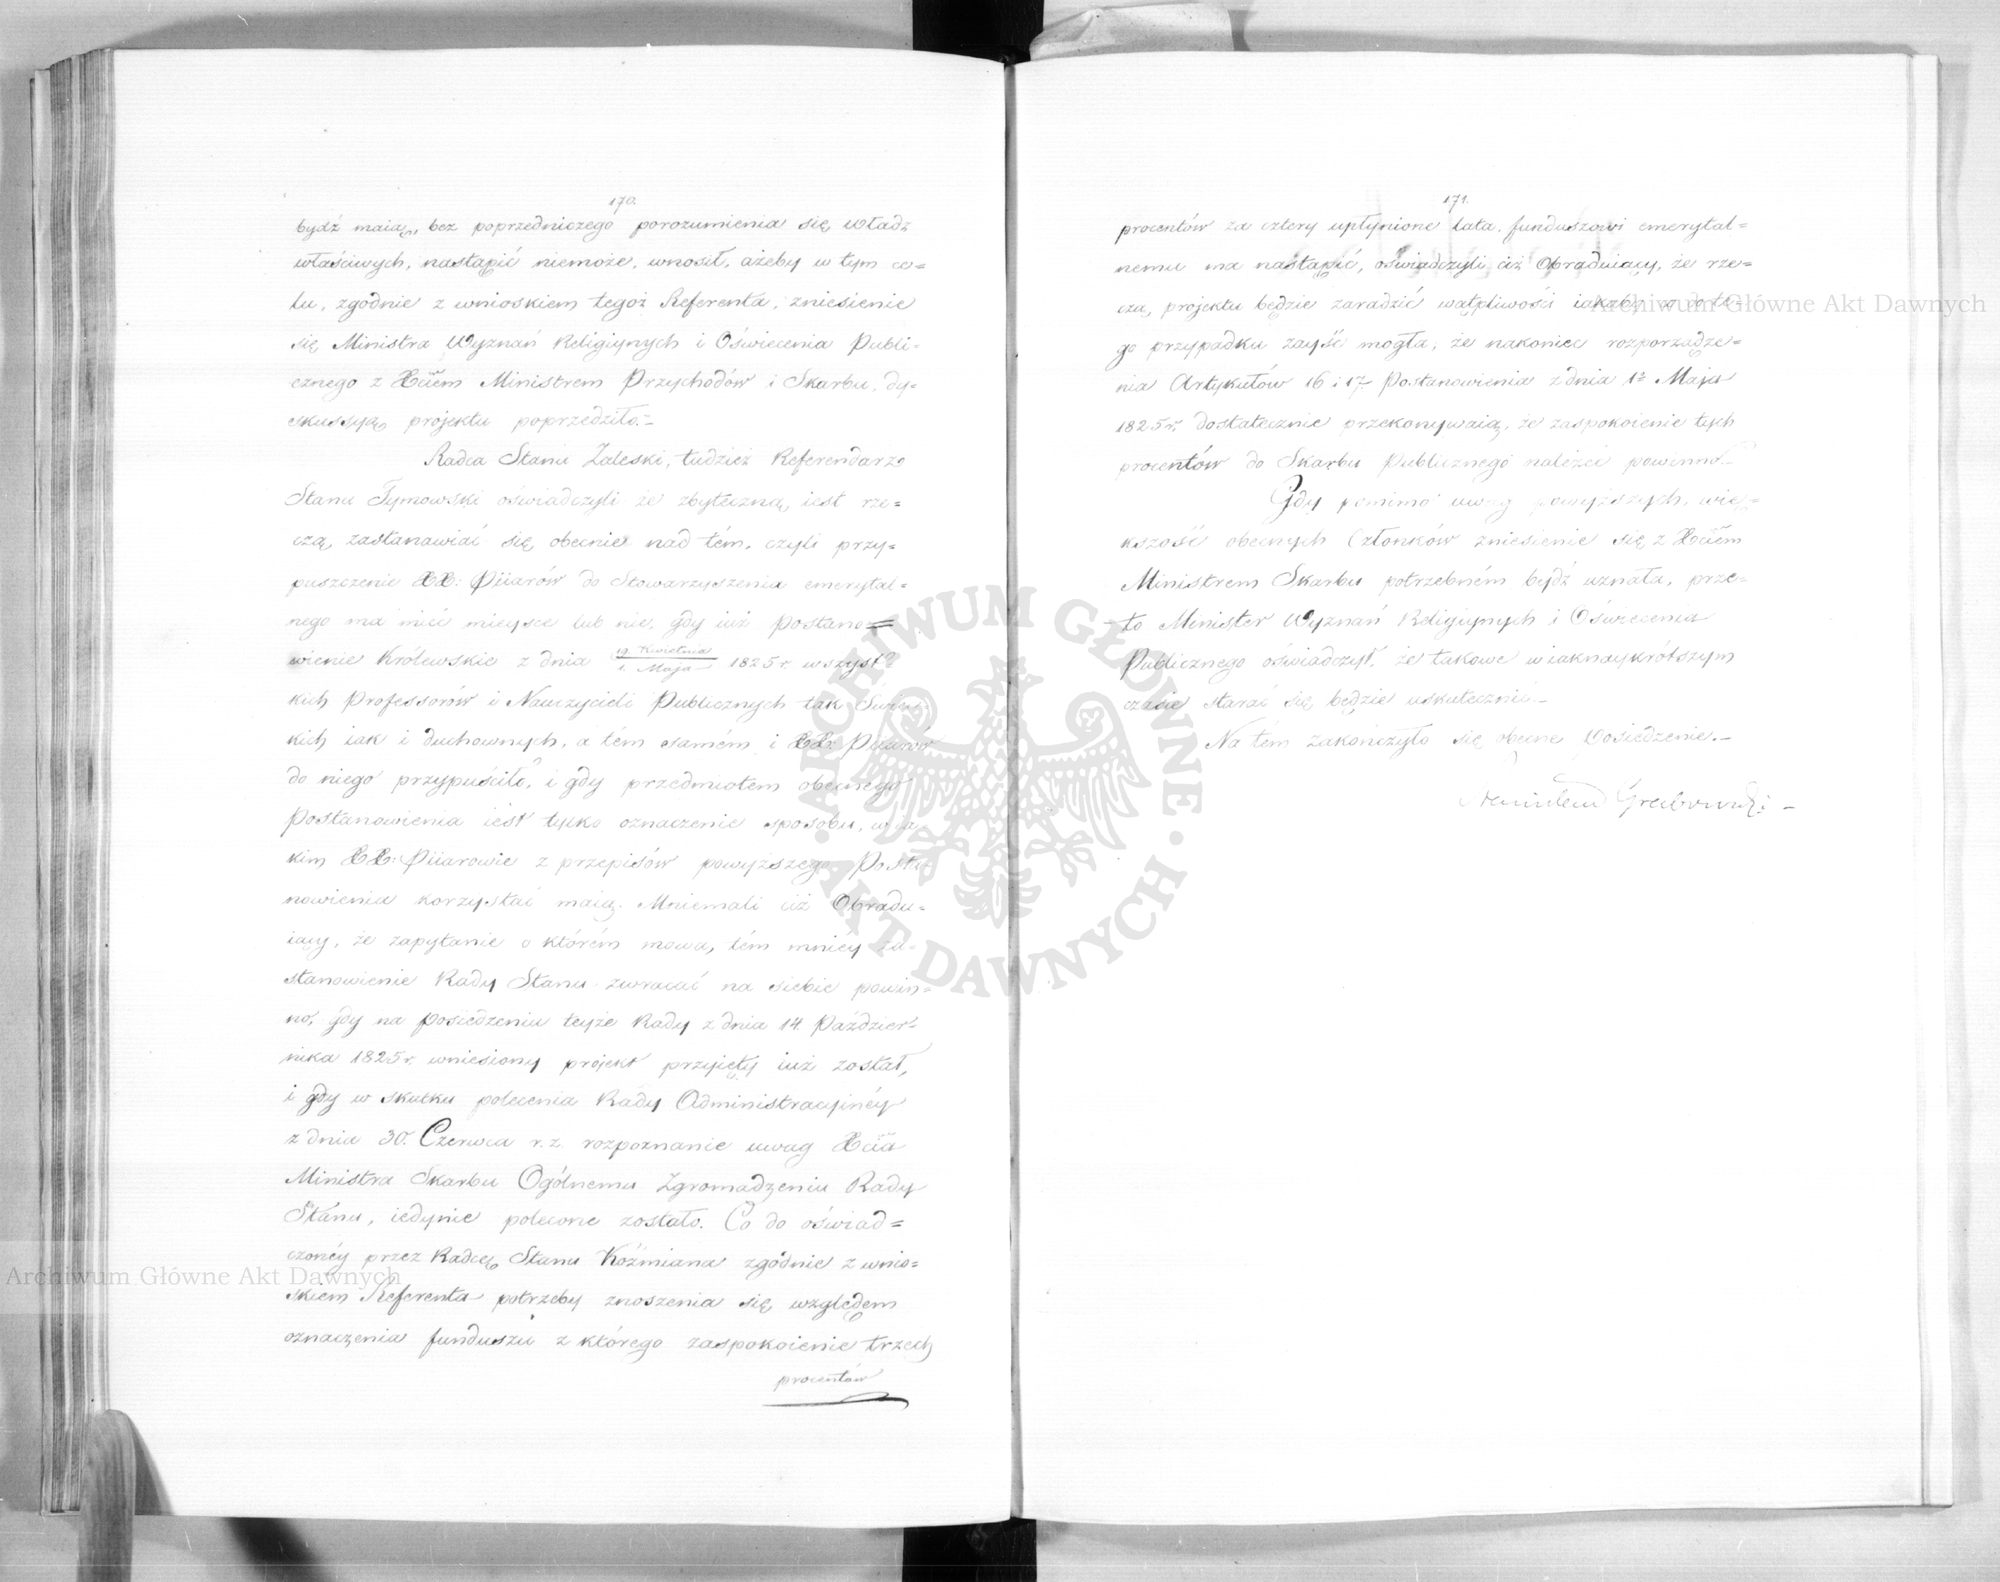 170.
bydź maią, bez poprzedniczego porozumienia się władz
właściwych, nastąpić niemoże, wnosił, ażeby w tym ce=
lu, zgodnie z wnioskiem tegoż Referenta, zniesienie
się Ministra Wyznań Religiynych i Oświecenia Publi-
cznego z Xciem Ministrem Przychodów i Skarbu, dy-
skussyą projektu poprzedziło.-
Radca Stanu Zaleski, tudzież Referendarz
Stanu Tymowski oświadczyli że zbyteczną iest rze=
czą, zastanawiać się obecnie nad tém, czyli przy=
puszczenie XX: Piiarów do Stowarzyszenia emerytal=
nego ma mieć mieysce lub nie, gdy iuż Postano=
wienie Królewskie z dnia 19. Kwietnia / 1. Maja 1825 r. wszyst=
kich Professorów i Nauczycieli Publicznych tak Świec-
kich iak i duchownych, a tém samém i XX: Piiarów
do niego przypuściło, i gdy przedmiotem obecnego
Postanowienia iest tylko oznaczenie sposobu, w ia
kim XX: Piiarowie z przepisów powyższego Posta-
nowienia korzystać maią. Mniemali ciż Obradu=
iący, że zapytanie o którém mowa, tém mniéy za-
stanowienie Rady Stanu zwracać na siebie powin=
no, gdy na posiedzeniu teyże Rady z dnia 14 Paździer-
nika 1825 r. wniesiony projekt przyięty iuż został,
i gdy w skutku polecenia Rady Administracyinéy
z dnia 30. Czerwca r. z. rozpoznanie uwag Xcia
Ministra Skarbu Ogólnemu Zgromadzeniu Rady
Stanu, iedynie polecone zostało. Co do oświad=
czonéy przez Radcę Stanu Koźmiana zgodnie z wnio=
skiem Referenta potrzeby znoszenia się względem
oznaczenia funduszu z którego zaspokoienie trzech
procentów
171.
procentów za cztery upłynione lata, funduszowi emerytal=
nemu ma nastąpić, oświadczyli ciż Obraduiący, że rze=
czą, projektu będzie zaradzić wątpliwości iakaby co do te-
go przypadku zayść mogła; że nakoniec rozporządze=
nia Artykułów 16 i 17. Postanowienia z dnia 1o Maja
1825 r. dostatecznie przekonywaią, że zaspokoienie tych
procentów do Skarbu Publicznego należeć powinno.-
Gdy pomimo uwag powyższych, wię=
kszość obecnych Członków zniesienie się z Xciem
Ministrem Skarbu potrzebném bydź uznała, prze=
to Minister Wyznań Religiynych i Oświecenia
Publicznego oświadczył, że takowe w iaknaykrótszym
czasie starać się będzie uskutecznić.-
Na tém zakończyło się obecne Posiedzenie.-
Stanisław Grabowski -
Archiwum Główne Akt Dawnych
Archiwum Główne Akt Dawnych
ARCHIWUM GŁÓWNE · AKT DAWNYCH ·